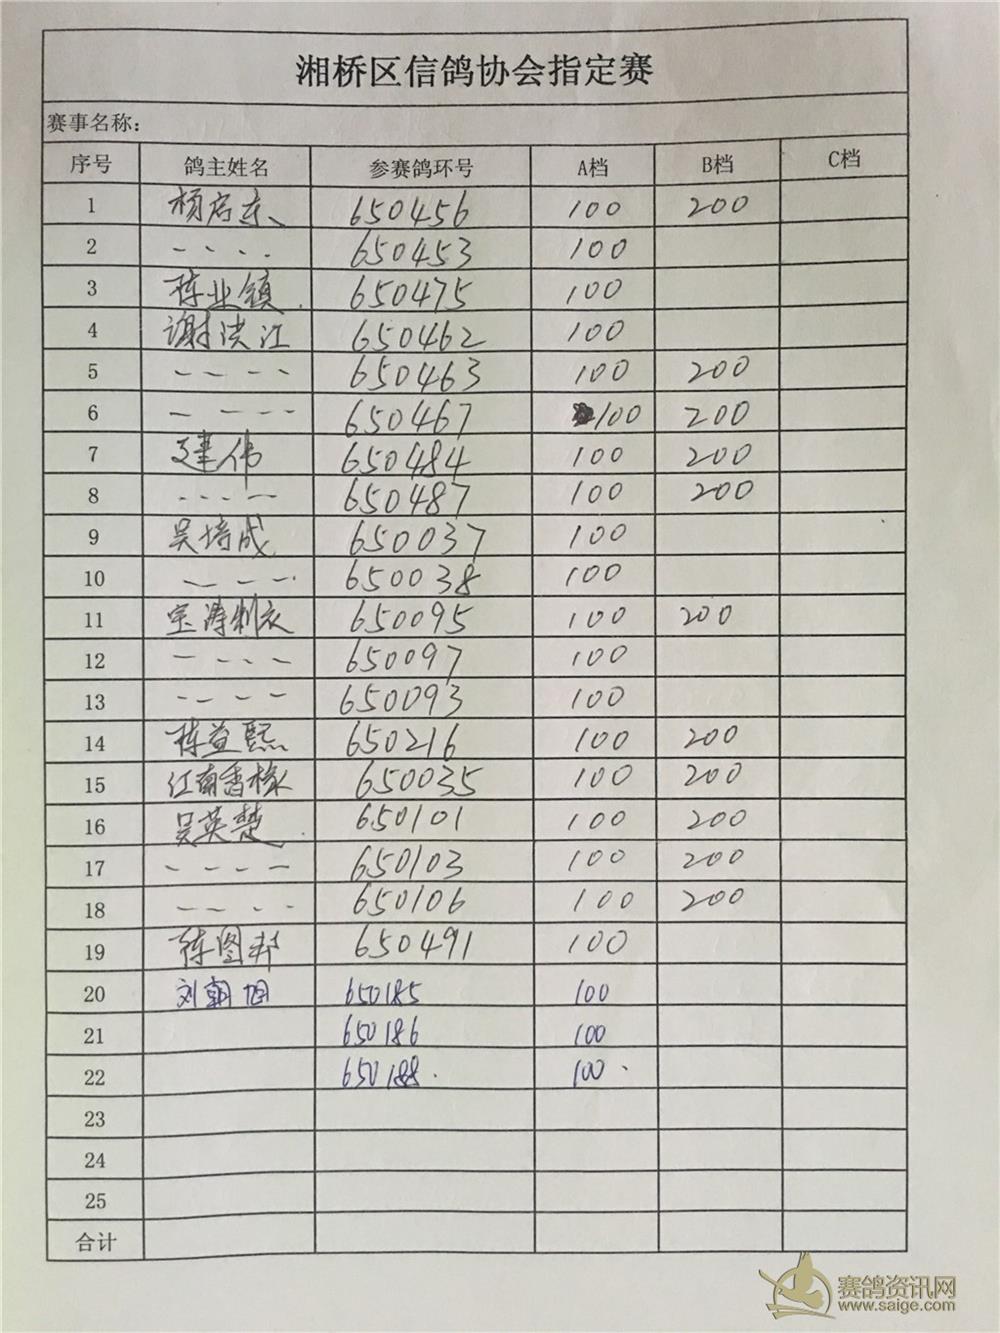 湘桥区信鸽协会指定赛
赛事名称：
序号 鸽主姓名 参赛鸽环号 A档 B档 C档
1 杨启东 650456 100 200
2 〃 650453 100
3 陈业镇 650475 100
4 谢洪江 650462 100
5 〃 650463 100 200
6 〃 650467 100 200
7 建伟 650484 100 200
8 〃 650487 100 200
9 吴培成 650037 100
10 〃 650038 100
11 宝涛制衣 650095 100 200
12 〃 650097 100
13 〃 650093 100
14 陈益熙 650216 100 200
15 江南香椽 650035 100 200
16 吴英楚 650101 100 200
17 〃 650103 100 200
18 〃 650106 100 200
19 陈图邦 650491 100
20 刘朝旭 650185 100
21 650186 100
22 650188 100
23
24
25
合计
赛鸽资讯网
www.saige.com